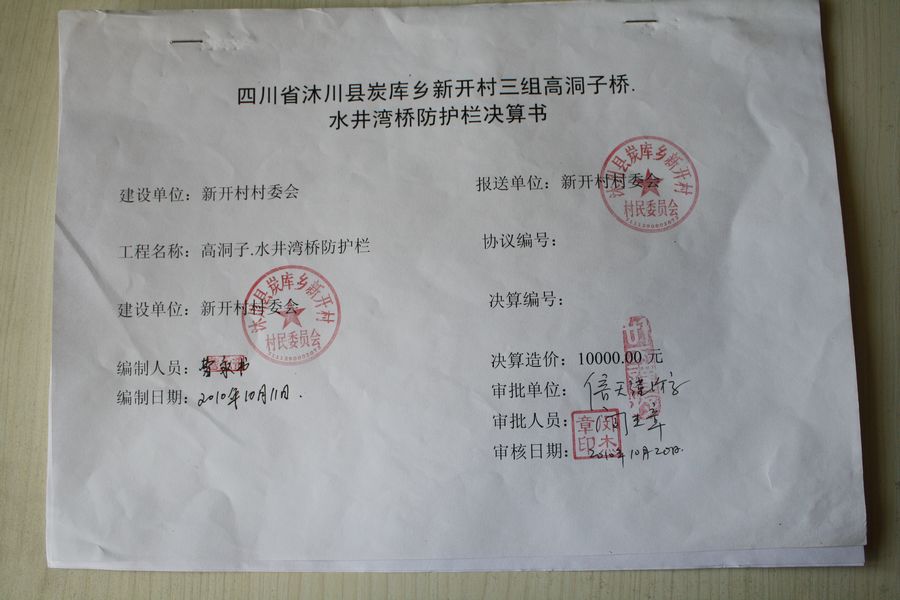 四川省沐川县炭库乡新开村三组高洞子桥.
水井湾桥防护栏决算书
建设单位：新开村村委会
报送单位：新开村村委会
沐川县炭库乡新开村
村民委员会
工程名称：高洞子.水井湾桥防护栏
协议编号：
建设单位：新开村村委会
沐川县炭库乡新开村
村民委员会
决算编号：
编制人员：
决算造价：10000.00 元
编制日期：2010年10月11日.
审批单位：
审批人员：
审核日期：2010年10月20日.